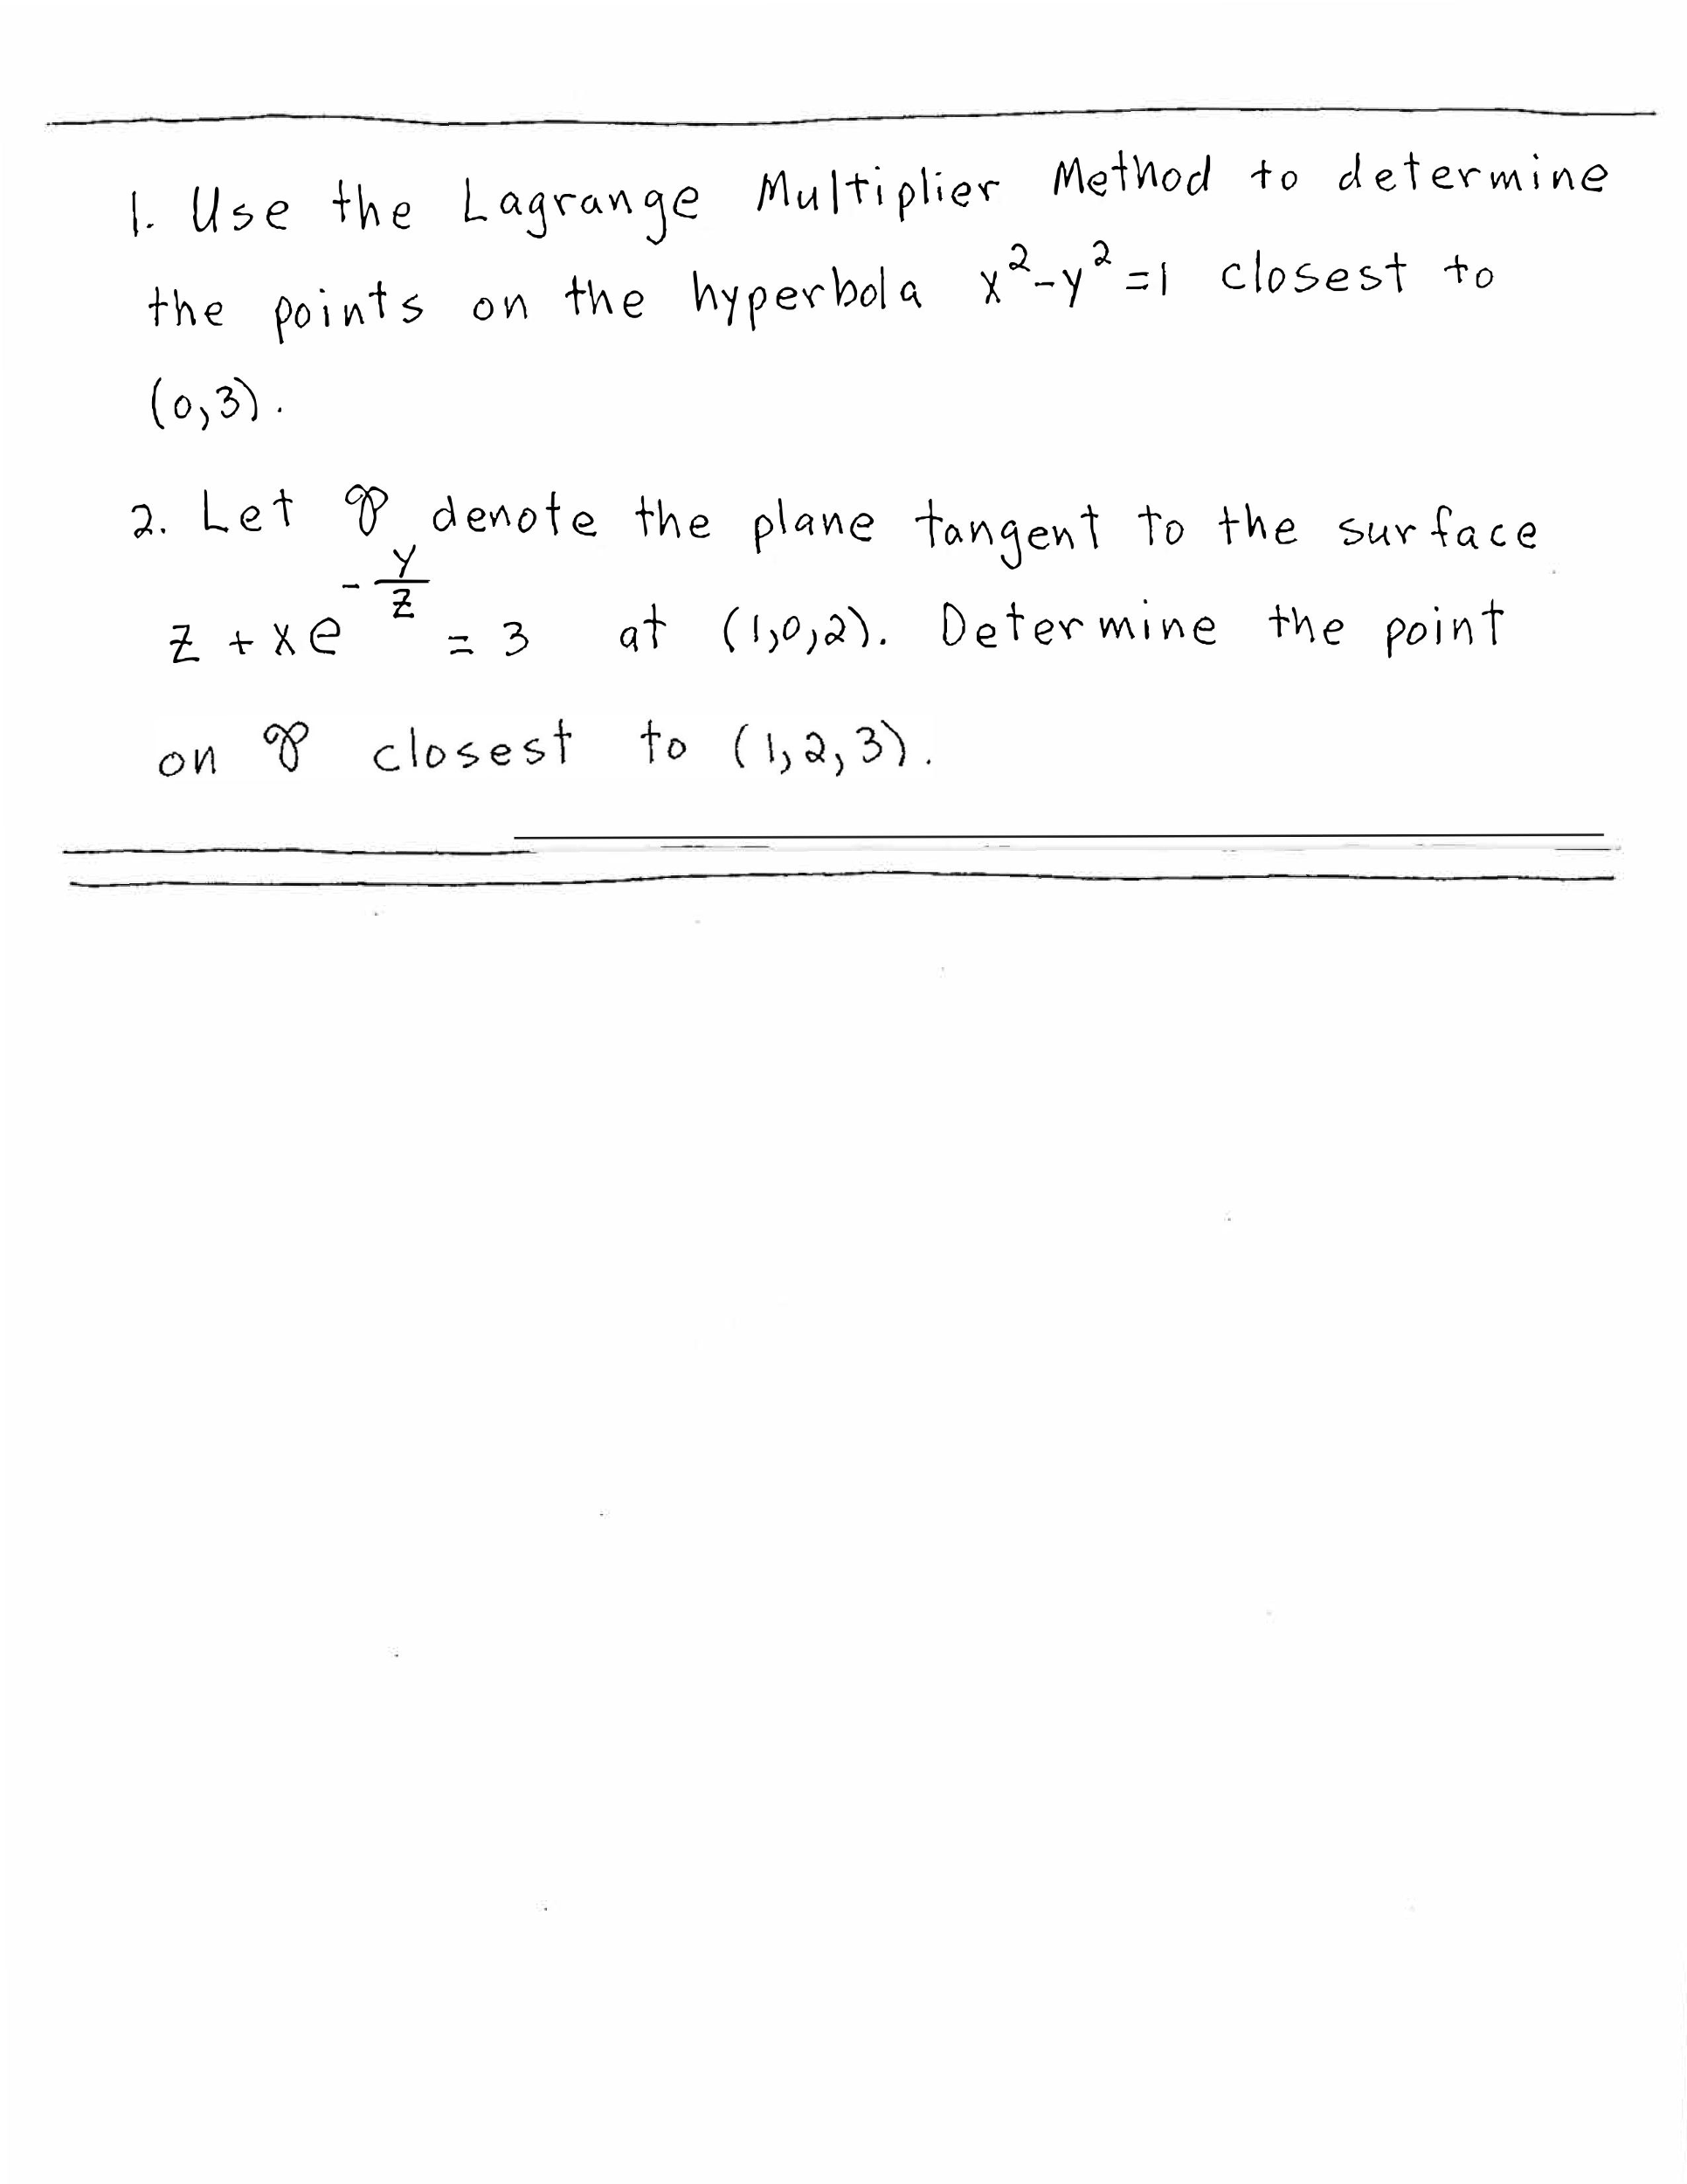 1. Use the Lagrange Multiplier Method to determine
the points on the hyperbola x²-y²=1 closest to
(0,3).
2. Let 𝒫 denote the plane tangent to the surface
z + xe^(-y/z) = 3 at (1,0,2). Determine the point
on 𝒫 closest to (1,2,3).